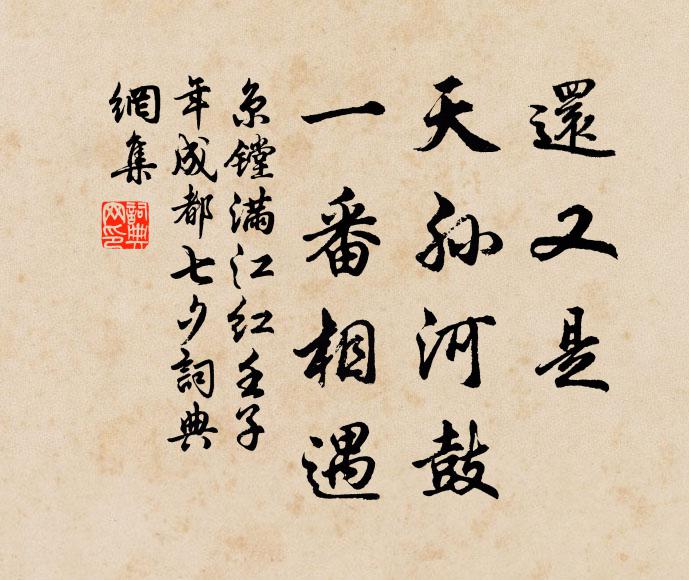 還又是
天孙河鼓
一番相遇
京鏜满江红壬子
年成都七夕詞典
網集
詞典
网印